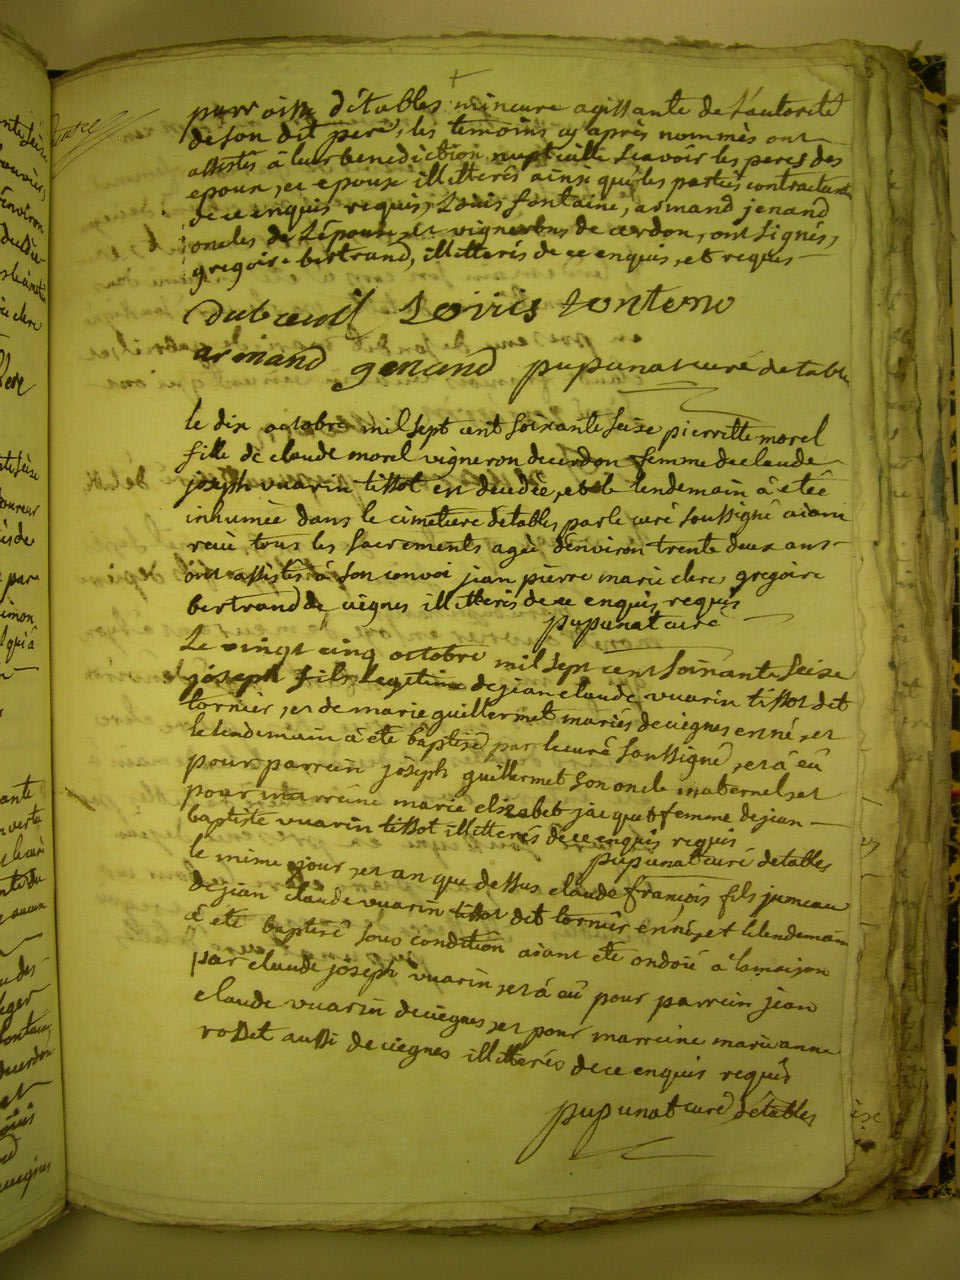 parroisse d'étables mineure agissante de l'autorité
de son dit pere, les temoins cy après nommés ont
assistés à leur benediction nuptialle scavoir les peres des
epoux, et epouse illitterés ainsi que les parties contractantes
de ce enquis requis, Louis fontaine, armand jenand
oncles de l'épouse et vignerons de cerdon, ont signés,
gregoire bertrand, illitterés de ce enquis, et requis
dubreuil Loüis fonteno
armand genand pupunat curé detables
le dix octobre mil sept cent soixante seize pierrette morel
fille de claude morel vigneron de cerdon femme de claude
joseph vuarin tissot est decedée, et le lendemain à eté
inhumée dans le cimetiere detables par le curé soussigné aiant
reçu tous les sacrements agée d'environ trente deux ans
ont assistés à son convoi jean pierre marie clerc gregoire
bertrand de viegnes illitterés de ce enquis requis
pupunat curé
Le vingt cinq octobre mil sept cent soixante seize
joseph fils legitime de jean claude vuarin tissot dit
tornier, et de marie guillermet mariés de viegnes est né, et
le lendemain à eté baptisé par le curé soussigné, et à eû
pour parrein joseph guillermet son oncle maternel, et
pour marreine marie elizabet jacquet femme de jean
baptiste vuarin tissot illitterés de ce enquis requis
pupunat curé detables
le même jour, et an que dessus claude françois fils jumeau
de jean claude vuarin tissot dit tornier est né, et le lendemain
à eté baptisé sous condition aiant eté ondoié a la maison
par claude joseph vuarin, et à eû pour parrein jean
claude vuarin de viegnes, et pour marreine marie anne
rodet aussi de viegnes illitterés de ce enquis requis
pupunat curé detables